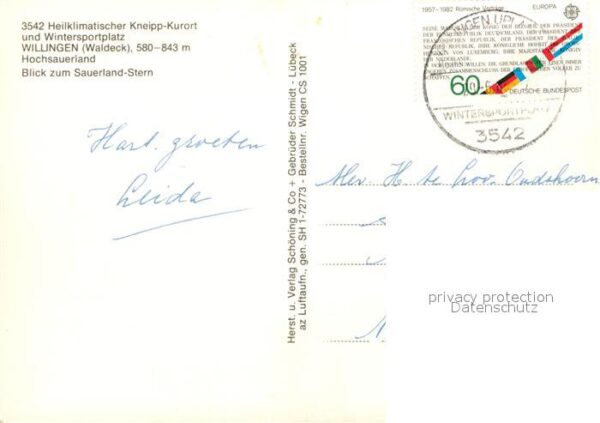 3542 Heilklimatischer Kneipp-Kurort
und Wintersportplatz
WILLINGEN (Waldeck), 580–843 m
Hochsauerland
Blick zum Sauerland-Stern
Hart. groeten
Leida
Herst. u. Verlag Schöning & Co + Gebrüder Schmidt - Lübeck
az Luftaufn., gen. SH 1-72773 - Bestellnr. Wigen CS 1001
1957–1982 Römische Verträge
EUROPA
60
DEUTSCHE BUNDESPOST
WILLINGEN UPLAND
WINTERSPORTPLATZ
3542
Mev. H te Lov. Oudshoorn
privacy protection
Datenschutz